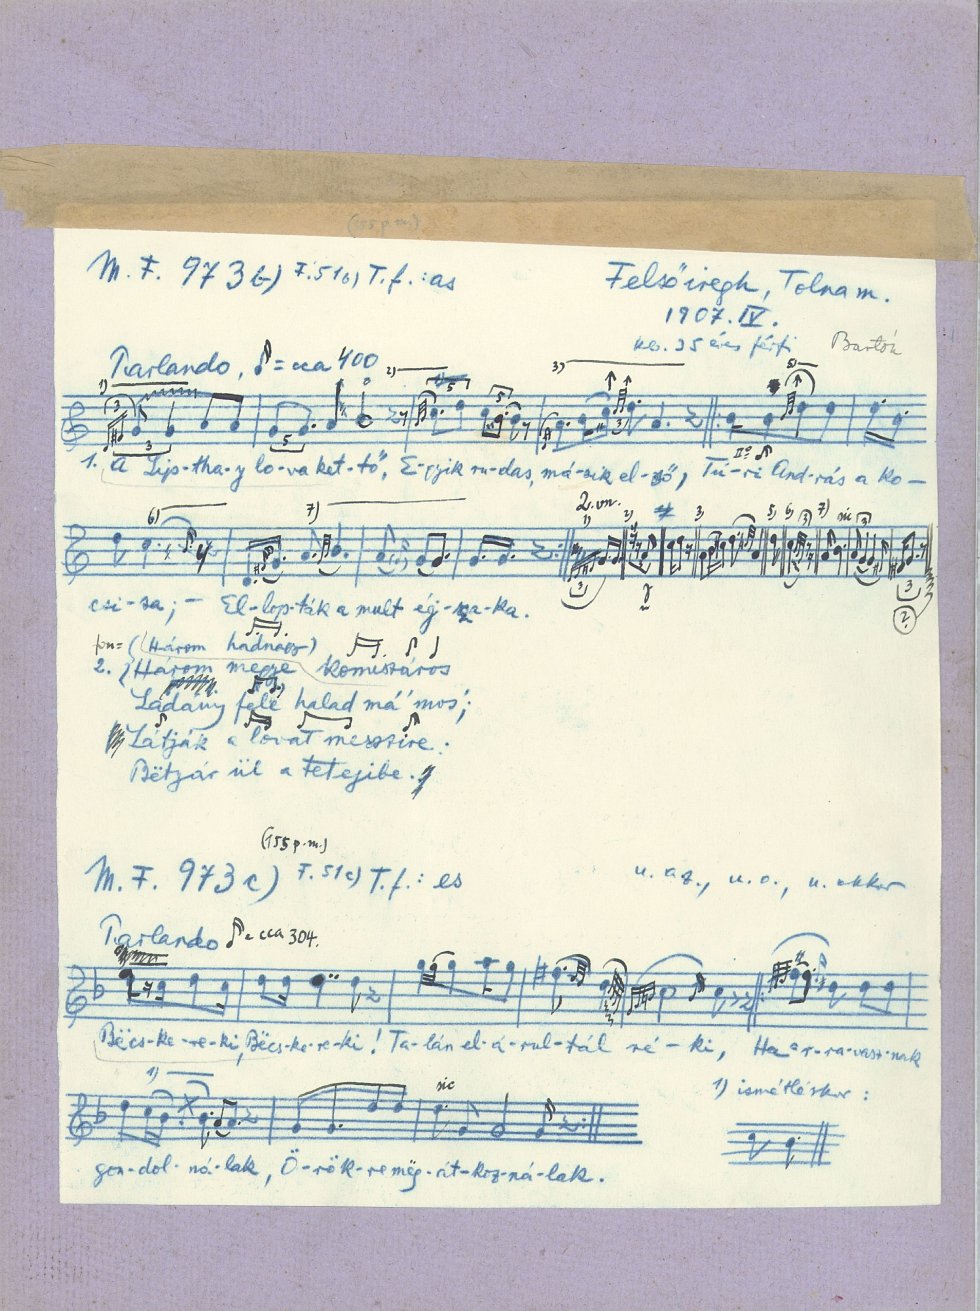 (155 p.m.)
M. F. 973 b) F. 51 b) T. f. : as
Felsőiregh, Tolna m.
1907. IV.
kb. 35 éves férfi
Bartók
Parlando, ♪ = cca 400
1) 2) 3) 5)
3 3 5 5 5 3
1. A Lips-tha-y lo-va ket-tő, E-gyik ru-das, má-sik el-ső, Tú-ri And-rás a ko-
6) 7) 2. vn. 1) 2) 3) 5) 6) 7) sic
csi-sa; - El-lop-ták a mult éj-sza-ka.
(Három hadnagy)
2. Három megye komiszáros
Ladány felé halad má' mos;
Látják a lovat messzire:
Bëtyár ül a tetejibe.
(155 p.m.)
M. F. 973 c) F. 51 c) T. f. : es
u. az., u. o., u. akkor
Parlando ♪ = cca 304.
Bëcs-ke-re-ki, Bëcs-ke-re-ki! Ta-lán el-á-rul-tál né-ki, Ha a r-ra-vasz-nak
1) sic
1) ismétléskor:
gon-dol-ná-lak, Ö-rök-re mëg-át-koz-ná-lak.